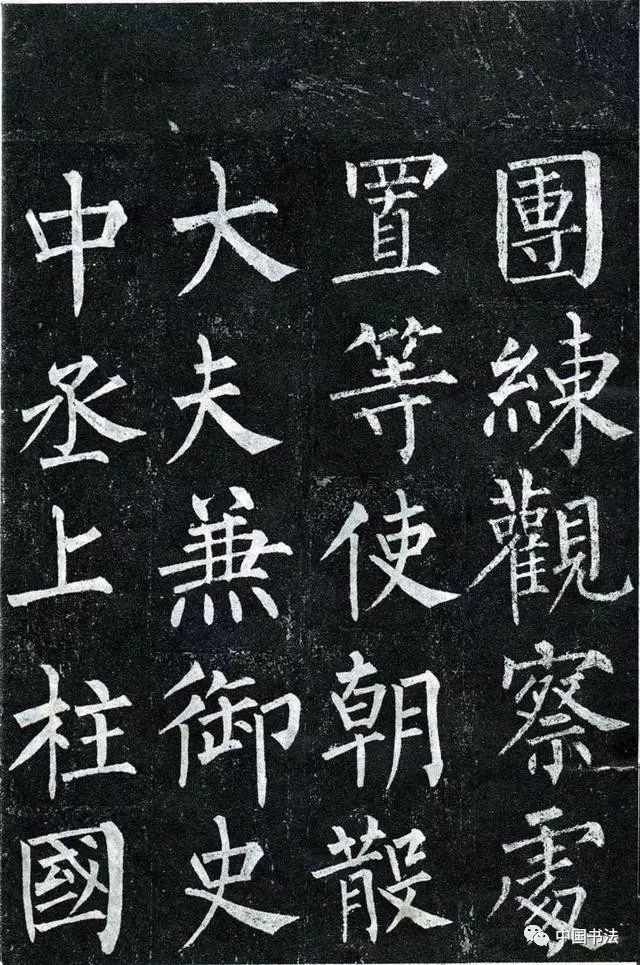 團練觀察處
置等使朝散
大夫兼御史
中丞上柱國
中国书法